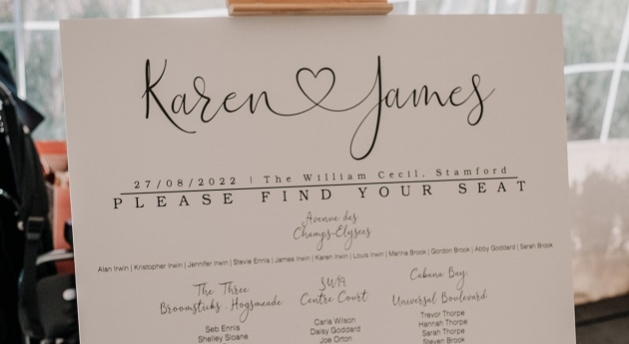 Karen James
27/08/2022 | The William Cecil, Stamford
PLEASE FIND YOUR SEAT
Avenue des
Champs-Elysees
Alan Irwin | Kristopher Irwin | Jennifer Irwin | Stevie Ennis | James Irwin | Karen Irwin | Louis Irwin | Marina Brook | Gordon Brook | Abby Goddard | Sarah Brook
The Three
Broomsticks, Hogsmeade
Seb Ennis
Shelley Sloane
SW19
Centre Court
Carla Wilson
Daisy Goddard
Joe Orton
Cabana Bay,
Universal Boulevard
Trevor Thorpe
Hannah Thorpe
Sarah Thorpe
Steven Brook